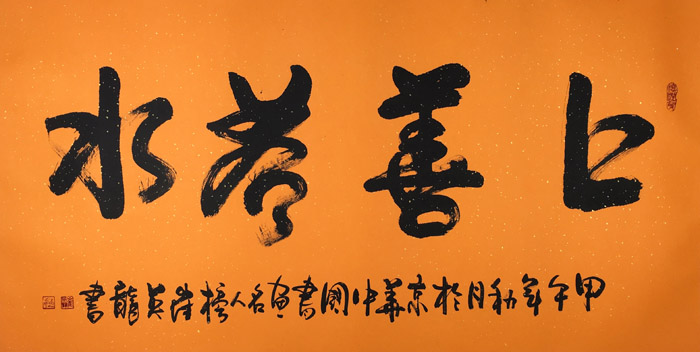 上善若水
甲午年月於京華中國書畫名人英龍書